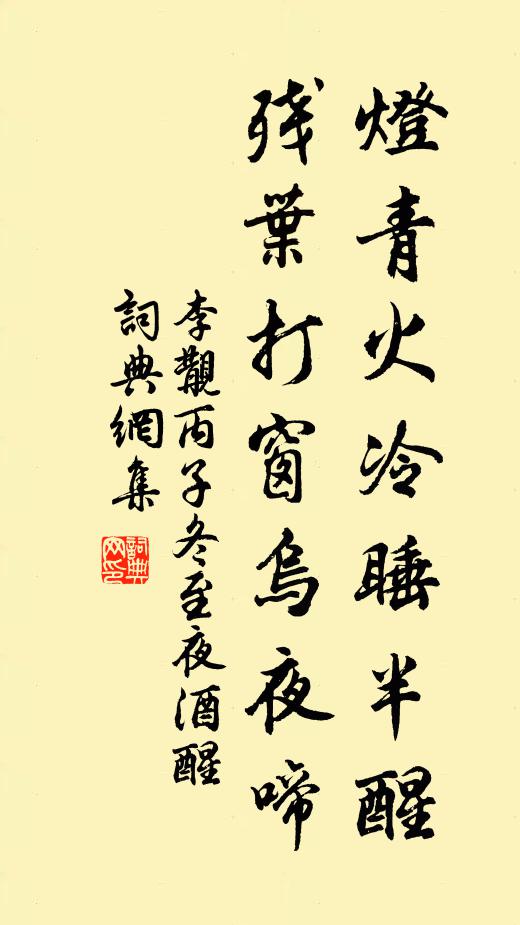 燈青火冷睡半醒
殘葉打窗烏夜啼
李覯丙子冬至夜酒醒
詞典網集
詞典網印